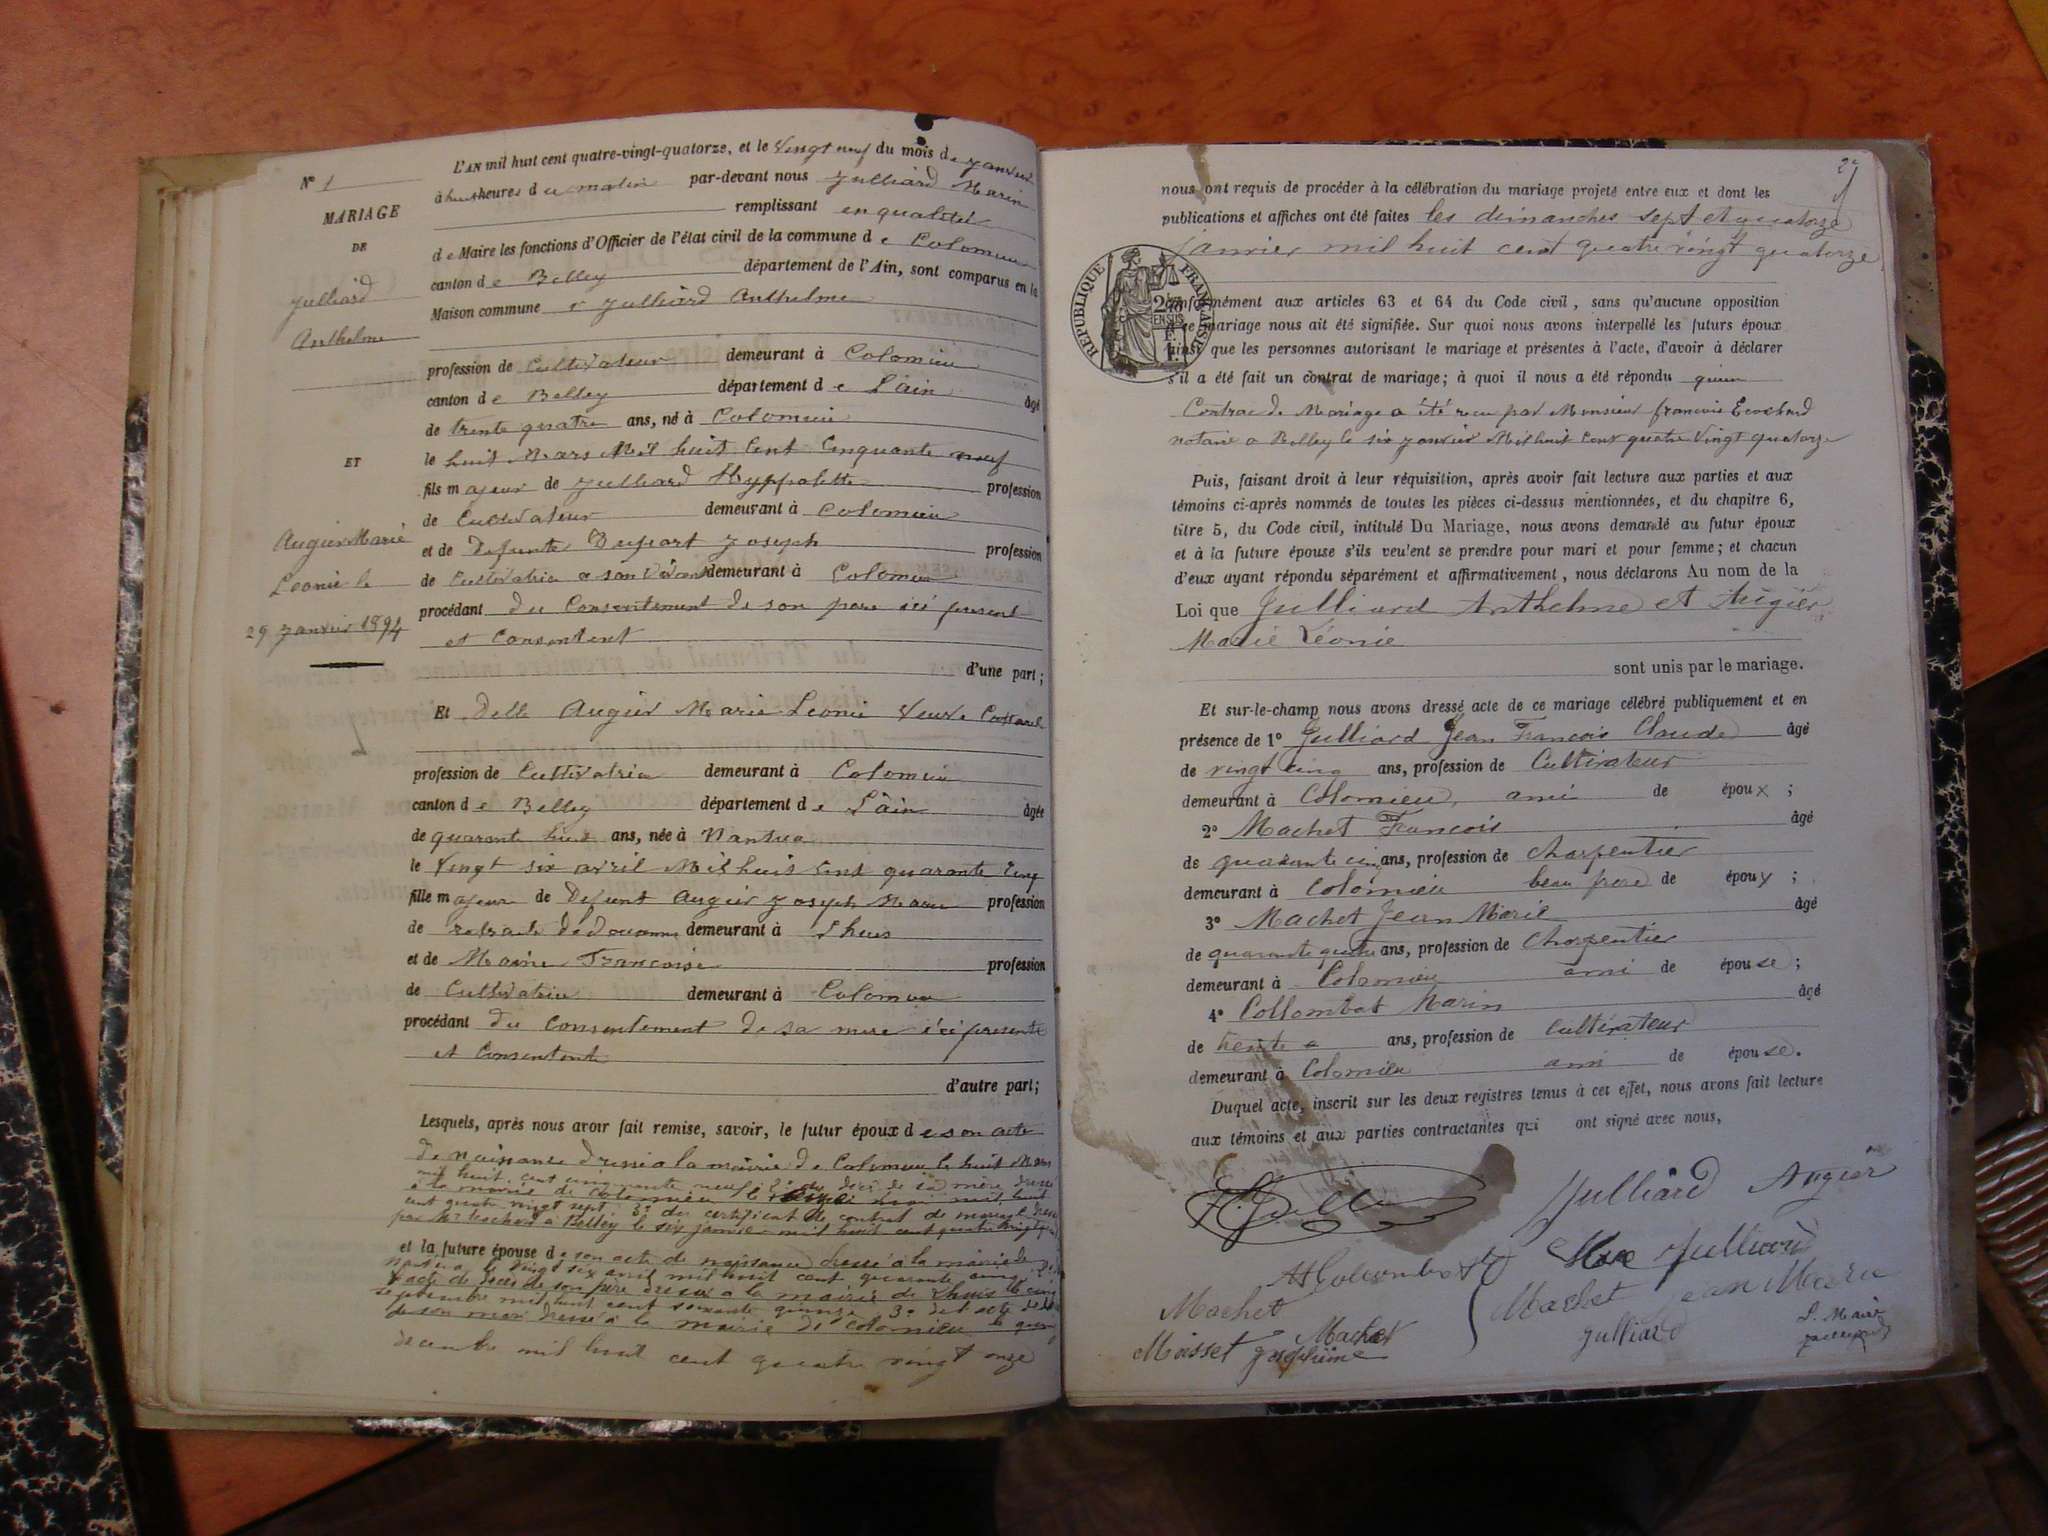 N° 1
MARIAGE
DE
Julliard
Anthelme
ET
Augier Marie
Leonie le
29 Janvier 1894
L'AN mil huit cent quatre-vingt-quatorze, et le Vingt neuf du mois de Janvier
à huit heures du matin par-devant nous Julliard Marin
remplissant en qualité
de Maire les fonctions d'Officier de l'état civil de la commune de Colomieu
canton de Belley département de l'Ain, sont comparus en la
Maison commune Julliard Anthelme
profession de Cultivateur demeurant à Colomieu
canton de Belley département de L'ain âgé
de trente quatre ans, né à Colomieu
le huit Mars Mil huit Cent Cinquante neuf
fils majeur de Julliard Hyppolitte profession
de Cultivateur demeurant à Colomieu
et de Defunte Joseph profession
de Cultivatrice a son vivant demeurant à Colomieu
procédant du Consentement de son pere ici present
et Consentent
d'une part;
Et Delle Augier Marie Leonie Veuve
profession de Cultivatrice demeurant à Colomieu
canton de Belley département de L'ain âgée
de quarante huit ans, née à Nantua
le Vingt six avril Mil huit Cent quarante Cinq
fille majeure de Defunt Augier Joseph Marie profession
de retraité de douanes demeurant à Lhuis
et de Marie Francoise profession
de Cultivatrice demeurant à Colomieu
procédant du Consentement de sa mere ici presente
et Consentente
d'autre part;
Lesquels, après nous avoir fait remise, savoir, le futur époux de son acte
de naissance dressé a la mairie de Colomieu le huit Mars
mil huit cent cinquante neuf 2° du décè de sa mère dressé
à la mairie de Colomieu le mil huit
cent quatre vingt sept 3° du certificat de contrat de mariage dressé
par Mr à Belley le six janvier mil huit cent quatre vingt
et la future épouse de son acte de naissance dressé à la mairie de
Nantua le vingt six avril mil huit cent quarante cinq
acte de décès de son père dressé a la mairie de Lhuis le cinq
septembre mil huit cent soixante quinze 3° de l'acte de décès
de son mari dressé à la mairie de Colomieu le
decembre mil huit cent quatre vingt onze
nous ont requis de procéder à la célébration du mariage projeté entre eux et dont les
publications et affiches ont été faites les dimanches sept et quatorze
janvier mil huit cent quatre vingt quatorze
RÉPUBLIQUE FRANÇAISE
conformément aux articles 63 et 64 du Code civil, sans qu'aucune opposition
à ce mariage nous ait été signifiée. Sur quoi nous avons interpellé les futurs époux
ainsi que les personnes autorisant le mariage et présentes à l'acte, d'avoir à déclarer
s'il a été fait un contrat de mariage; à quoi il nous a été répondu
Contrac de Mariage a été recu par Monsieur francois
notaire a Belley le six janvier Mil huit Cent quatre Vingt quatorze
Puis, faisant droit à leur réquisition, après avoir fait lecture aux parties et aux
témoins ci-après nommés de toutes les pièces ci-dessus mentionnées, et du chapitre 6,
titre 5, du Code civil, intitulé Du Mariage, nous avons demandé au futur époux
et à la future épouse s'ils veulent se prendre pour mari et pour femme; et chacun
d'eux ayant répondu séparément et affirmativement, nous déclarons Au nom de la
Loi que Julliard Anthelme et Augier
Marie Léonie
sont unis par le mariage.
Et sur-le-champ nous avons dressé acte de ce mariage célébré publiquement et en
présence de 1° Julliard Jean Francois Claude âgé
de vingt cinq ans, profession de Cultivateur
demeurant à Colomieu, ami de époux ;
2° Machet Francois âgé
de quarante cinq ans, profession de charpentier
demeurant à Colomieu beau frere de époux ;
3° Machet Jean Marie âgé
de quarante quatre ans, profession de charpentier
demeurant à Colomieu ami de épouse ;
4° Collombat Marin âgé
de trente ans, profession de cultivateur
demeurant à Colomieu ami de épouse.
Duquel acte, inscrit sur les deux registres tenus à cet effet, nous avons fait lecture
aux témoins et aux parties contractantes qui ont signé avec nous,
Julliard Augier
Julliard
Machet Jean Marie
Machet
Machet
Moisset Joséphine
Julliard
L. Maire